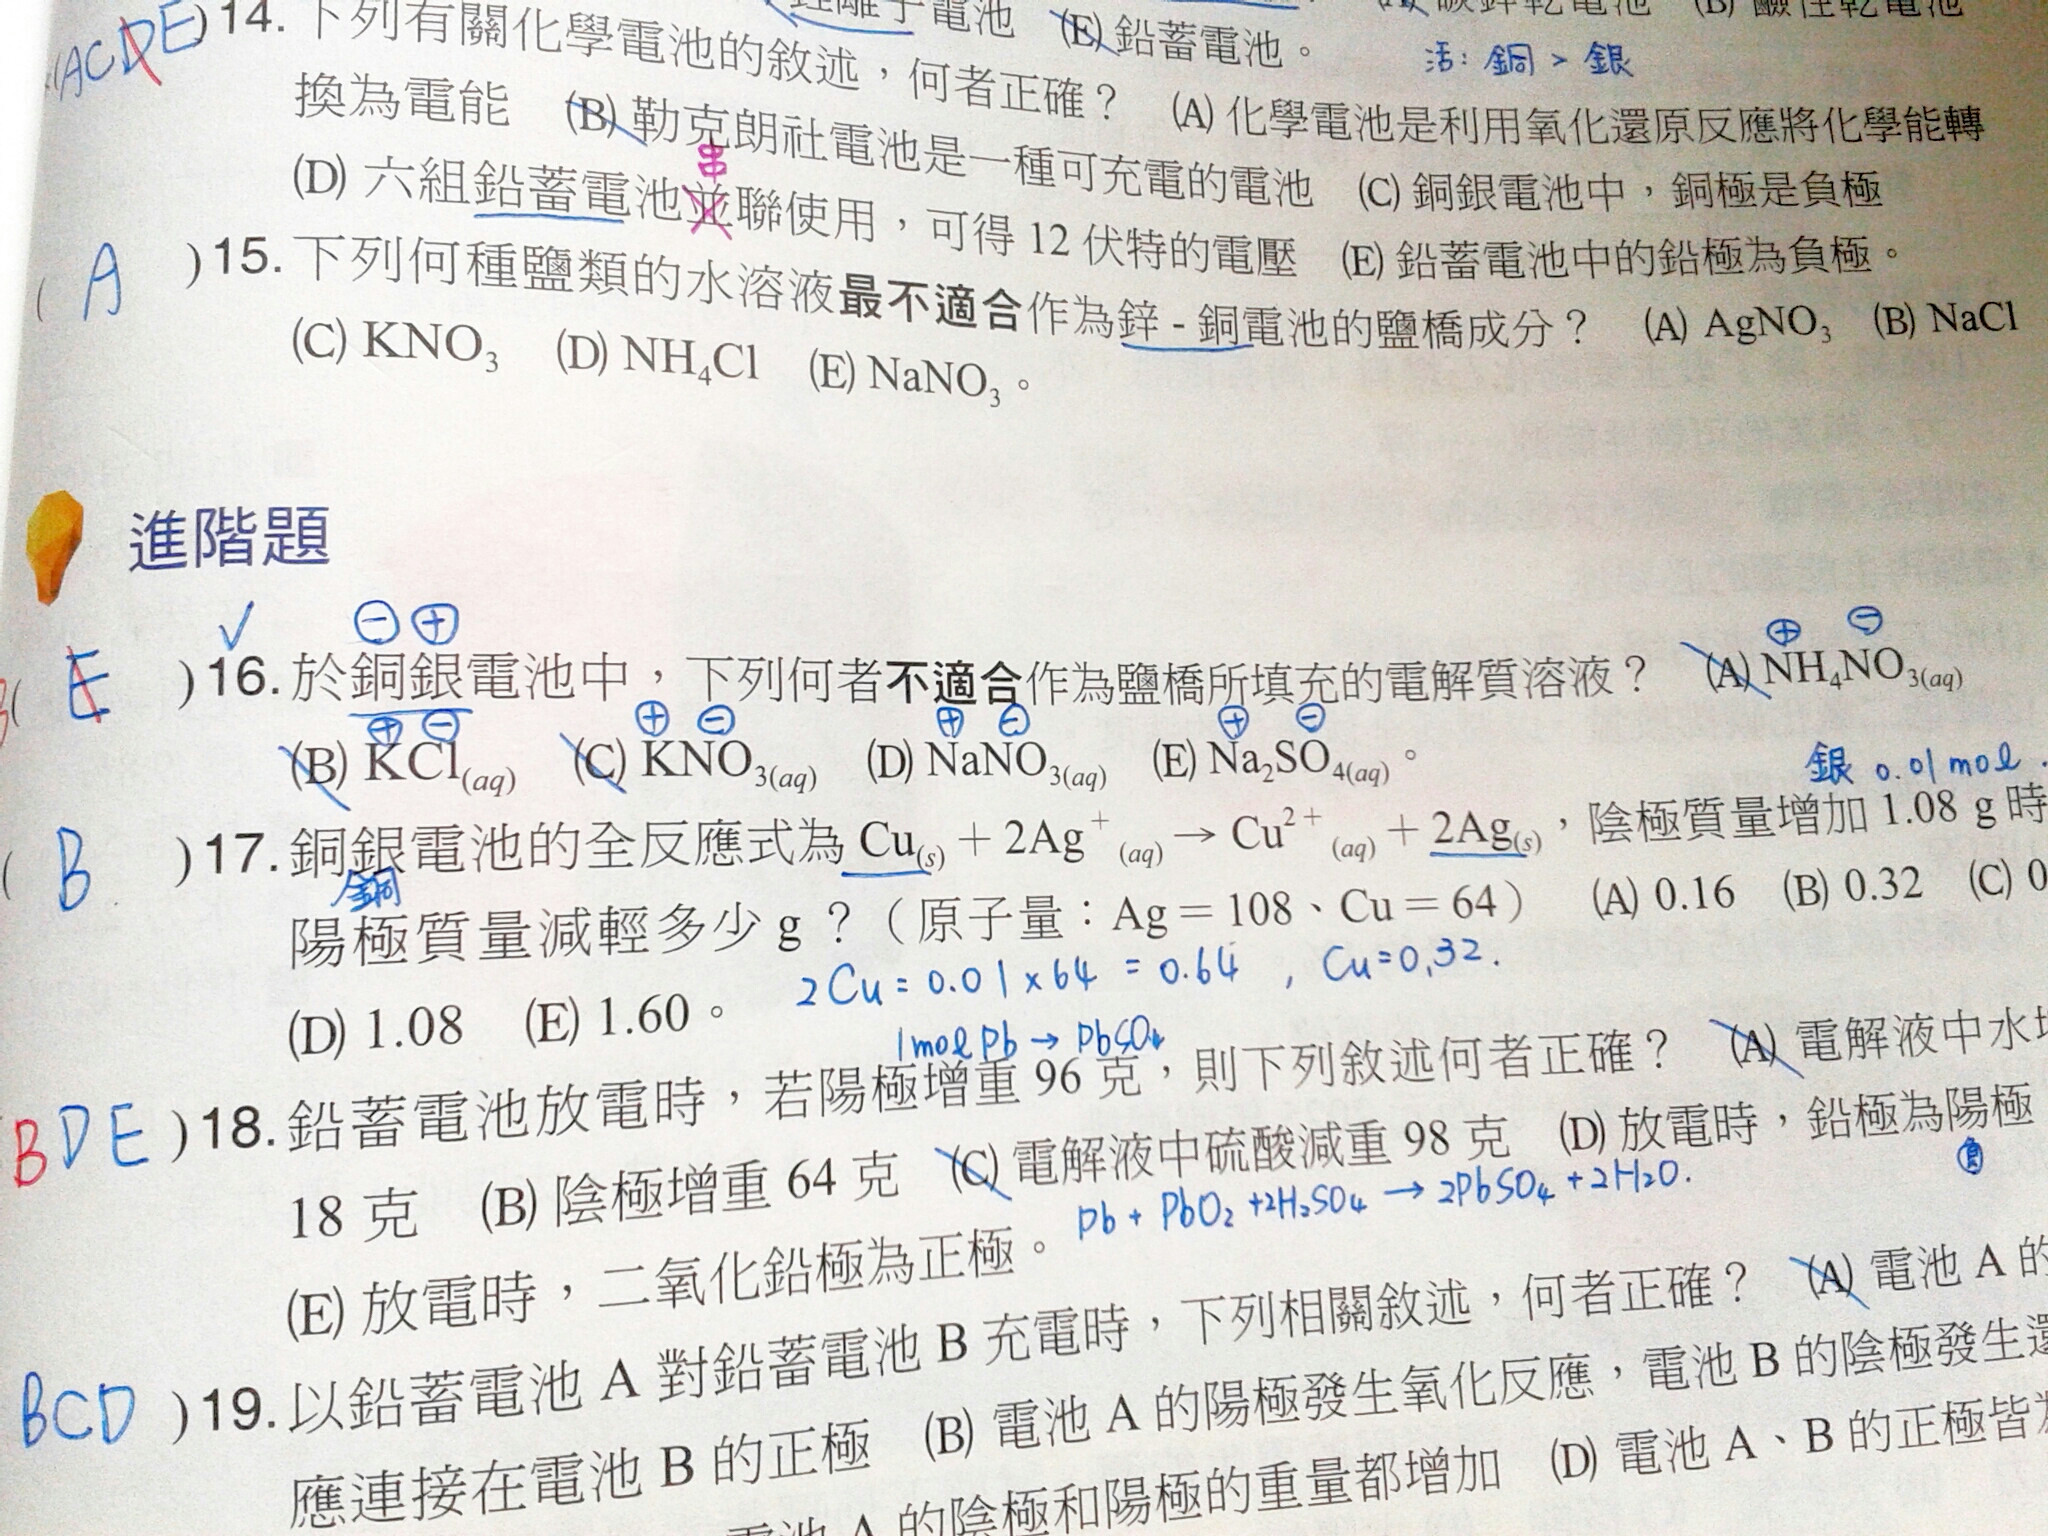 電池 (E) 鉛蓄電池。
活：銅 > 銀
(ACDE) 14. 下列有關化學電池的敘述，何者正確？ (A) 化學電池是利用氧化還原反應將化學能轉
換為電能 (B) 勒克朗社電池是一種可充電的電池 (C) 銅銀電池中，銅極是負極
串
(D) 六組鉛蓄電池並聯使用，可得 12 伏特的電壓 (E) 鉛蓄電池中的鉛極為負極。
( A ) 15. 下列何種鹽類的水溶液最不適合作為鋅 - 銅電池的鹽橋成分？ (A) AgNO₃ (B) NaCl
(C) KNO₃ (D) NH₄Cl (E) NaNO₃。
進階題
⊖ ⊕ ⊕ ⊖
B( E ) 16. 於銅銀電池中，下列何者不適合作為鹽橋所填充的電解質溶液？ (A) NH₄NO₃(aq)
⊕ ⊖ ⊕ ⊖ ⊕ ⊖ ⊕ ⊖
(B) KCl(aq) (C) KNO₃(aq) (D) NaNO₃(aq) (E) Na₂SO₄(aq)。
銀 0.01 mol.
( B ) 17. 銅銀電池的全反應式為 Cu(s) + 2Ag⁺(aq) → Cu²⁺(aq) + 2Ag(s)，陰極質量增加 1.08 g 時
銅
陽極質量減輕多少 g？（原子量：Ag = 108、Cu = 64） (A) 0.16 (B) 0.32 (C) 0
2Cu = 0.01 x 64 = 0.64 , Cu = 0.32.
(D) 1.08 (E) 1.60。
1mol Pb → PbSO₄
BDE ) 18. 鉛蓄電池放電時，若陽極增重 96 克，則下列敘述何者正確？ (A) 電解液中水
18 克 (B) 陰極增重 64 克 (C) 電解液中硫酸減重 98 克 (D) 放電時，鉛極為陽極
負
Pb + PbO₂ + 2H₂SO₄ → 2PbSO₄ + 2H₂O.
(E) 放電時，二氧化鉛極為正極。
BCD ) 19. 以鉛蓄電池 A 對鉛蓄電池 B 充電時，下列相關敘述，何者正確？ (A) 電池 A 的
應連接在電池 B 的正極 (B) 電池 A 的陽極發生氧化反應，電池 B 的陰極發生還
電池 A 的陰極和陽極的重量都增加 (D) 電池 A、B 的正極皆